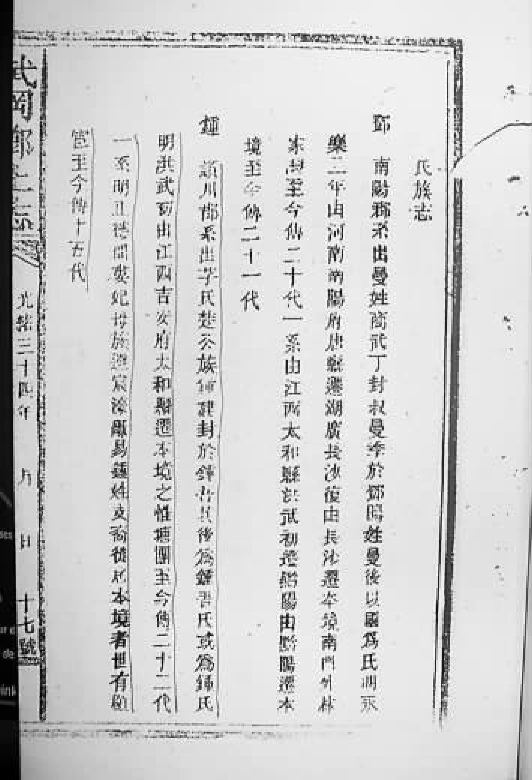 氏族志
鄧 南陽郡系出曼姓商武丁封叔曼季於鄧賜姓曼後以國為氏明永
樂二年由河南南陽府唐縣遷湖廣長沙復由長沙遷本境南門外林
家灣至今傳二十代一系由江西太和縣洪武初遷黔陽由黔陽遷本
境至今傳二十一代
鍾 潁川郡系出芈氏楚公族鍾建封於鍾吾其後為鍾吾氏或為鍾氏
明洪武初由江西吉安府太和縣遷本境之惟塘團至今傳二十二代
一系明正德間婁妃母族避宸濠亂易鍾姓支裔徙居本境者世有顯
宦至今傳十五代
武岡鄉土志
光緒三十四年 月 日 十七號